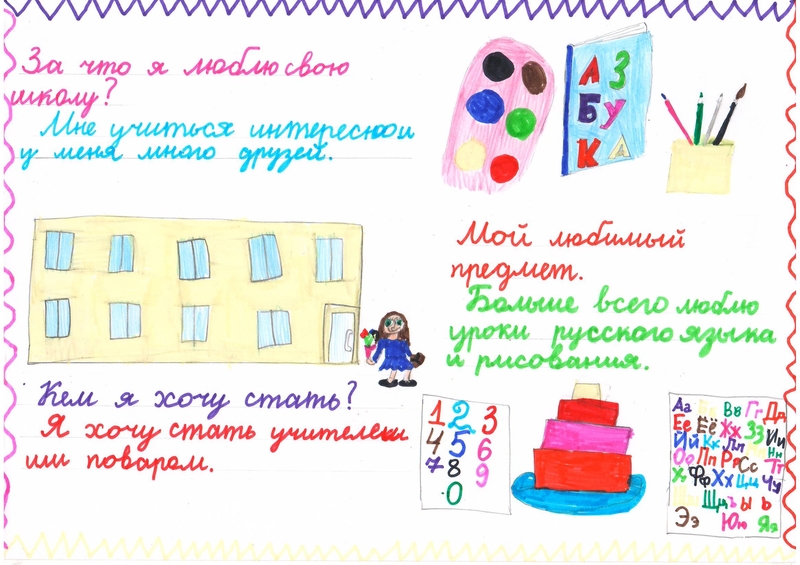 За что я люблю свою
школу?
Мне учиться интересно и
у меня много друзей.
АЗ
БУ
КА
Мой любимый
предмет.
Больше всего люблю
уроки русского языка
и рисования.
Кем я хочу стать?
Я хочу стать учителем
или поваром.
1 2 3
4 5 6
7 8 9
0
Аа Вв Гг Дд
Ее Ёё Жж Зз Ии
Йй Кк Лл Нн
Оо Пп Рр Сс Тт
Фф Хх Цц Чч
Щщ ъ ы ь
Ээ Юю Яя